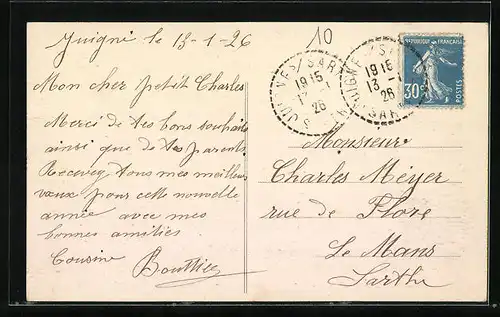 Juigné le 13-1-26
Mon cher petit Charles
Merci de tes bons souhaits
ainsi que de tes parents
Recevez tous mes meilleurs
vœux pour cette nouvelle
année avec mes
bonnes amitiés
Cousine Bouttier
10
1915
13-1
26
JUIGNÉ S/ SAR
1915
13-1
26
SAR
RÉPUBLIQUE FRANÇAISE
30c
Monsieur
Charles Méyer
rue de Flore
Le Mans
Sarthe